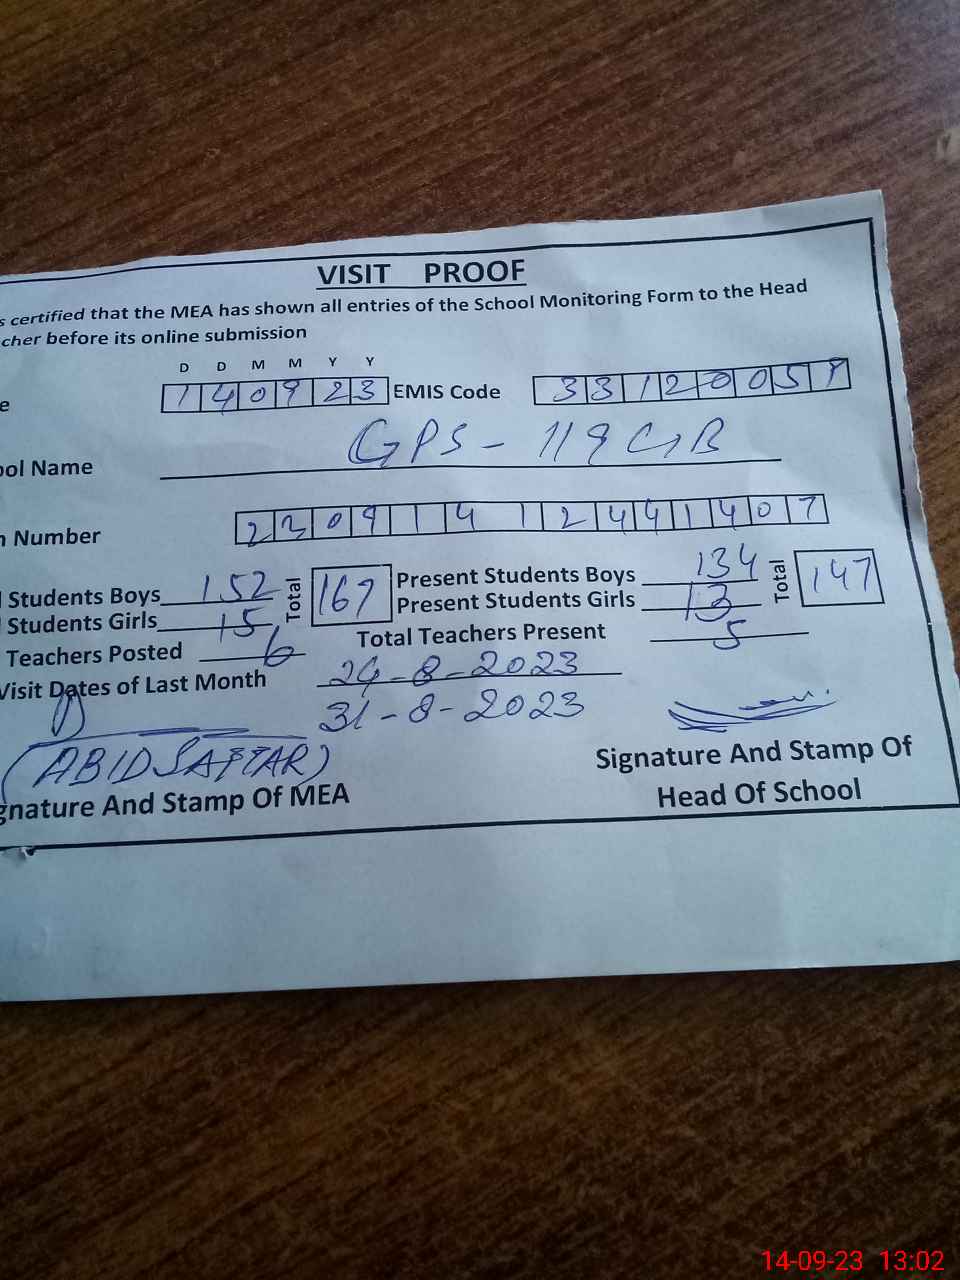 VISIT PROOF
s certified that the MEA has shown all entries of the School Monitoring Form to the Head
cher before its online submission
D D M M Y Y
e 140923 EMIS Code 3312005
ool Name GPS - 119 GB
n Number 23091412441407
l Students Boys 152 Total 167 Present Students Boys 134 Total 147
Students Girls 15 Present Students Girls 13
Teachers Posted 6 Total Teachers Present 5
Visit Dates of Last Month 24-8-2023
31-8-2023
(ABID SATTAR)
gnature And Stamp Of MEA
Signature And Stamp Of
Head Of School
14-09-23 13:02